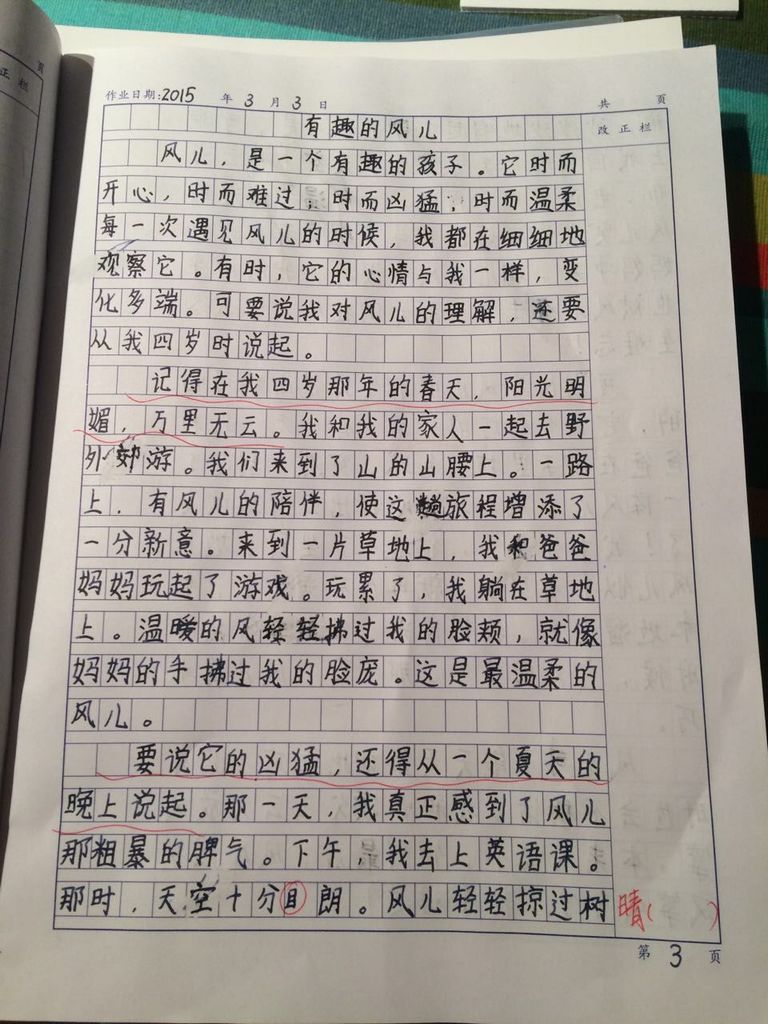 正栏
页
作业日期:2015 年 3 月 3 日 共 页
有趣的风儿 改正栏
风儿，是一个有趣的孩子。它时而
开心，时而难过，时而凶猛，时而温柔
每一次遇见风儿的时候，我都在细细地
观察它。有时，它的心情与我一样，变
化多端。可要说我对风儿的理解，还要
从我四岁时说起。
记得在我四岁那年的春天，阳光明
媚，万里无云。我和我的家人一起去野
外郊游。我们来到了山的山腰上。一路
上，有风儿的陪伴，使这趟旅程增添了
一分新意。来到一片草地上，我和爸爸
妈妈玩起了游戏。玩累了，我躺在草地
上。温暖的风轻轻拂过我的脸颊，就像
妈妈的手拂过我的脸庞。这是最温柔的
风儿。
要说它的凶猛，还得从一个夏天的
晚上说起。那一天，我真正感到了风儿
那粗暴的脾气。下午，我去上英语课。
那时，天空十分目朗。风儿轻轻掠过树 晴( )
第 3 页